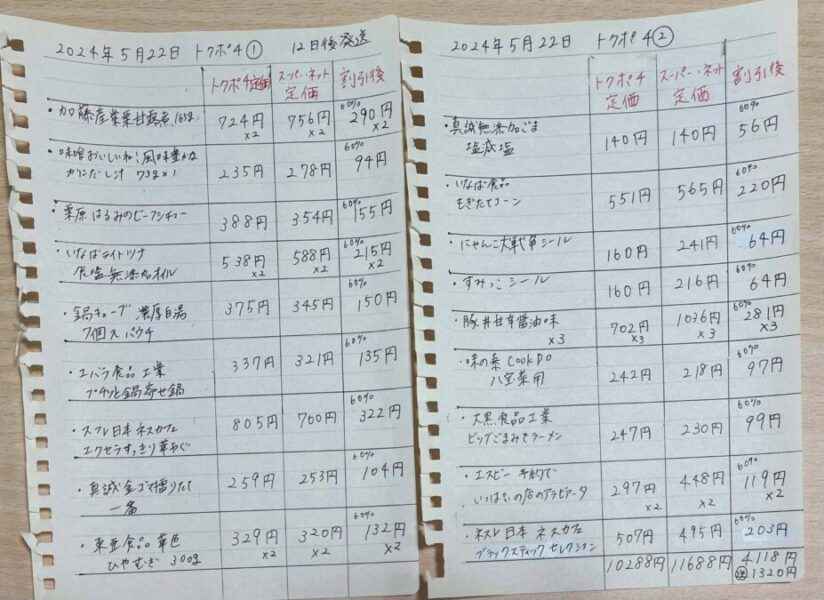 2024年5月22日 トクポチ① 12日後発送
トクポチ定価 スーパー・ネット定価 割引後
・加藤産業栗甘露煮 165g 724円×2 756円×2 60% 290円×2
・味噌おいしいね!風味豊かな
かにだし汁 73g×1 235円 278円 60% 94円
・栗原はるみのビーフシチュー 388円 354円 60% 155円
・いなばライトツナ
食塩無添加オイル 538円×2 588円×2 60% 215円×2
・鍋キューブ 濃厚白湯
7個入パウチ 375円 345円 60% 150円
・エバラ食品工業
プチッと鍋寄せ鍋 337円 321円 60% 135円
・ネスレ日本 ネスカフェ
エクセラすっきり華やぐ 805円 700円 60% 322円
・真誠金ゴマ擂りたて
一番 259円 253円 60% 104円
・東亜食品 革色
ひやむぎ 300g 329円×2 320円×2 60% 132円×2
2024年5月22日 トクポチ②
トクポチ定価 スーパー・ネット定価 割引後
・真誠無添加ごま
塩減塩 140円 140円 60% 56円
・いなば食品
もぎたてコーン 551円 565円 60% 220円
・にゃんこ大戦争シール 160円 241円 60% 64円
・すみっこシール 160円 216円 60% 64円
・豚丼甘辛醤油味
×3 702円×3 1036円×3 60% 281円×3
・味の素 COOK DO
八宝菜用 242円 218円 60% 97円
・大黒食品工業
ビッグごまみそラーメン 247円 230円 60% 99円
・エスビー 予約で
いっぱいの店のアラビアータ 297円×2 448円×2 60% 119円×2
・ネスレ日本 ネスカフェ
ブラックスティックセレクション 507円 495円 60% 203円
10288円 11688円 4118円
送 1320円